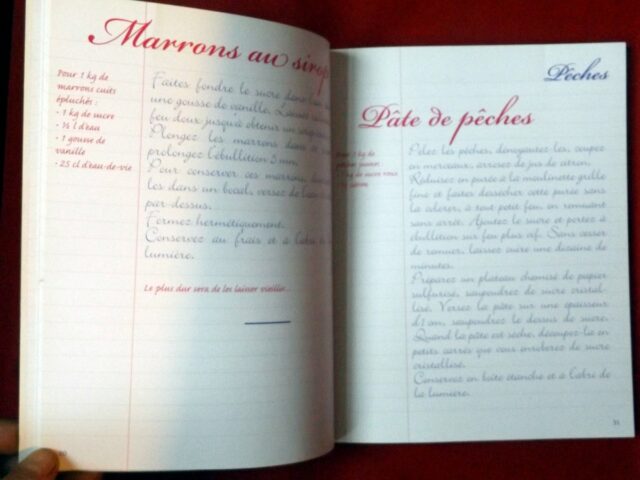 Marrons au sirop
Pour 1 kg de
marrons cuits
épluchés :
• 1 kg de sucre
• ½ l d'eau
• 1 gousse de
vanille
• 25 cl d'eau-de-vie
Faites fondre le sucre dans
une gousse de vanille. Laissez
feu doux jusqu'à obtenir un
Plongez les marrons dans
prolongez l'ébullition 5 mn.
Pour conserver ces marrons,
les dans un bocal, versez de
par-dessus.
Fermez hermétiquement.
Conservez au frais et à l'abri de
lumière.
Le plus dur sera de les laisser vieillir...
Pêches
Pâte de pêches
Pour 1 kg de
kg de sucre roux
citron
Pelez les pêches, dénoyautez-les, coupez
en morceaux, arrosez de jus de citron.
Réduisez en purée à la moulinette grille
fine et faites dessécher cette purée sans
la colorer, à tout petit feu, en remuant
sans arrêt. Ajoutez le sucre et portez à
ébullition sur feu plus vif. Sans cesser
de remuer, laissez cuire une dizaine de
minutes.
Préparez un plateau chemisé de papier
sulfurisé, saupoudrez de sucre cristal-
lisé. Versez la pâte sur une épaisseur
d'1 cm, saupoudrez le dessus de sucre.
Quand la pâte est sèche, découpez-la en
petits carrés que vous enroberez de sucre
cristallisé.
Conservez en boîte étanche et à l'abri de
la lumière.